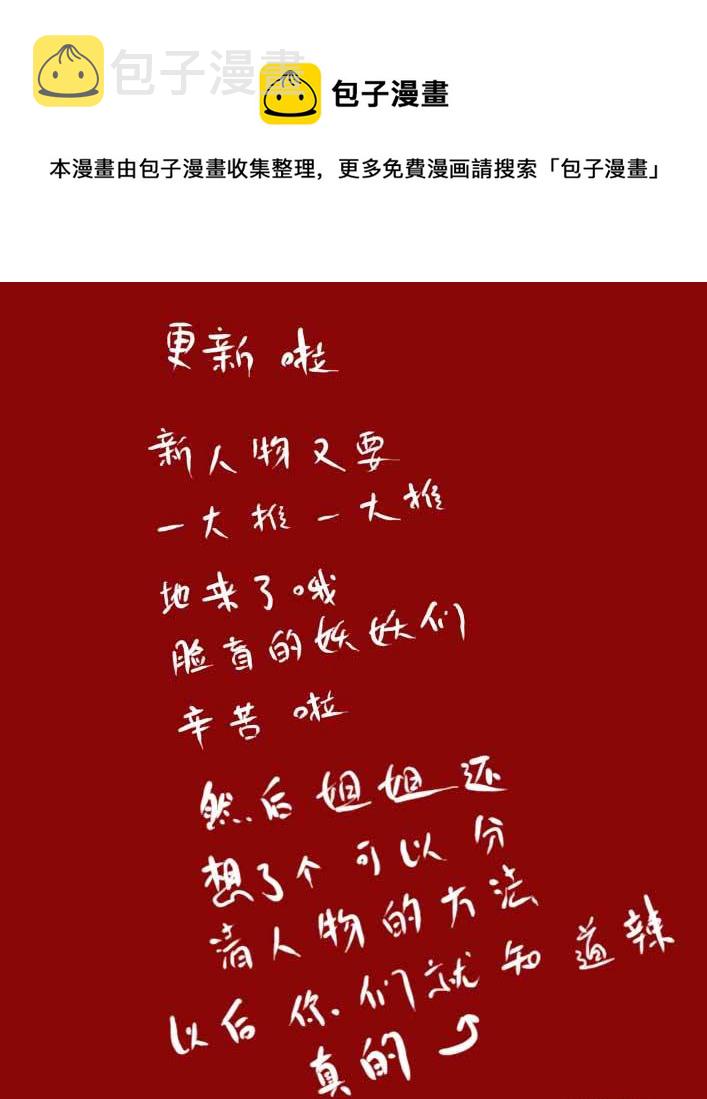 包子漫畫
包子漫畫
本漫畫由包子漫畫收集整理，更多免費漫画請搜索「包子漫畫」
更新啦
新人物又要
一大推一大推
地来了哦
脸盲的妖妖们
辛苦啦
然后姐姐还
想了个可以分
清人物的方法
以后你们就知道辣
真的